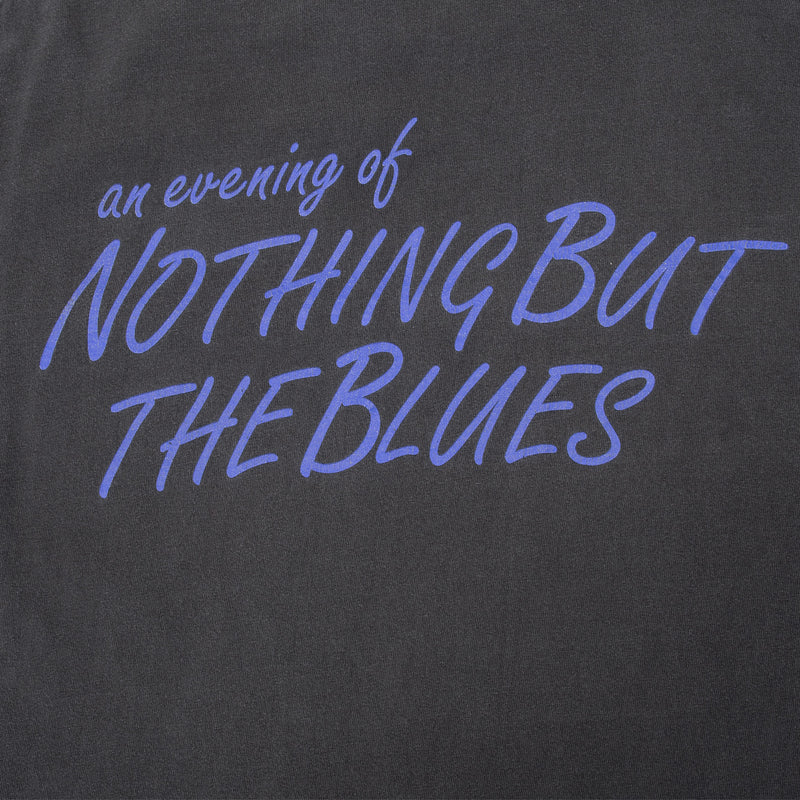 an evening of
NOTHING BUT
THE BLUES